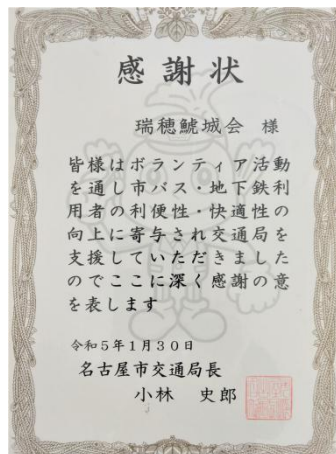 感謝状
瑞穂鯱城会 様
皆様はボランティア活動
を通し市バス・地下鉄利
用者の利便性・快適性の
向上に寄与され交通局を
支援していただきました
のでここに深く感謝の意
を表します
令和5年1月30日
名古屋市交通局長
小林 史郎